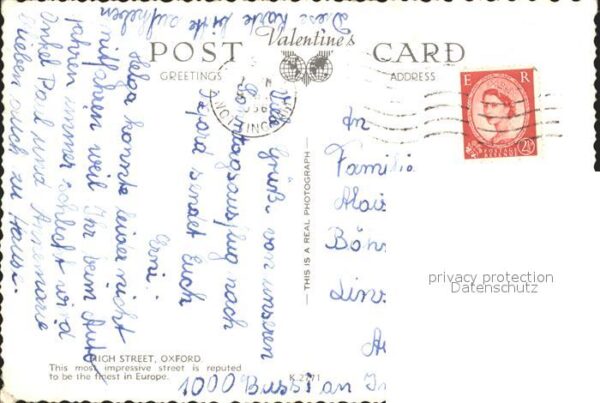 Diese Karte bitte aufheben
POST Valentine's CARD
GREETINGS
ADDRESS
E R
POSTAGE REVENUE
2½D
Viele Grüße von unserem
Tagesausflug nach
Oxford sendet Euch
Erni.
Helga konnte leider nicht
mitfahren weil Ihr beim Auto
fahren immer schlecht wird
Onkel Paul und Annemarie
bleiben auch zu Hause.
THIS IS A REAL PHOTOGRAPH
An
Familie
Alois
Böh
Linz
1000 Bussi an
privacy protection
Datenschutz
HIGH STREET, OXFORD
This most impressive street is reputed
to be the finest in Europe.
K.2771